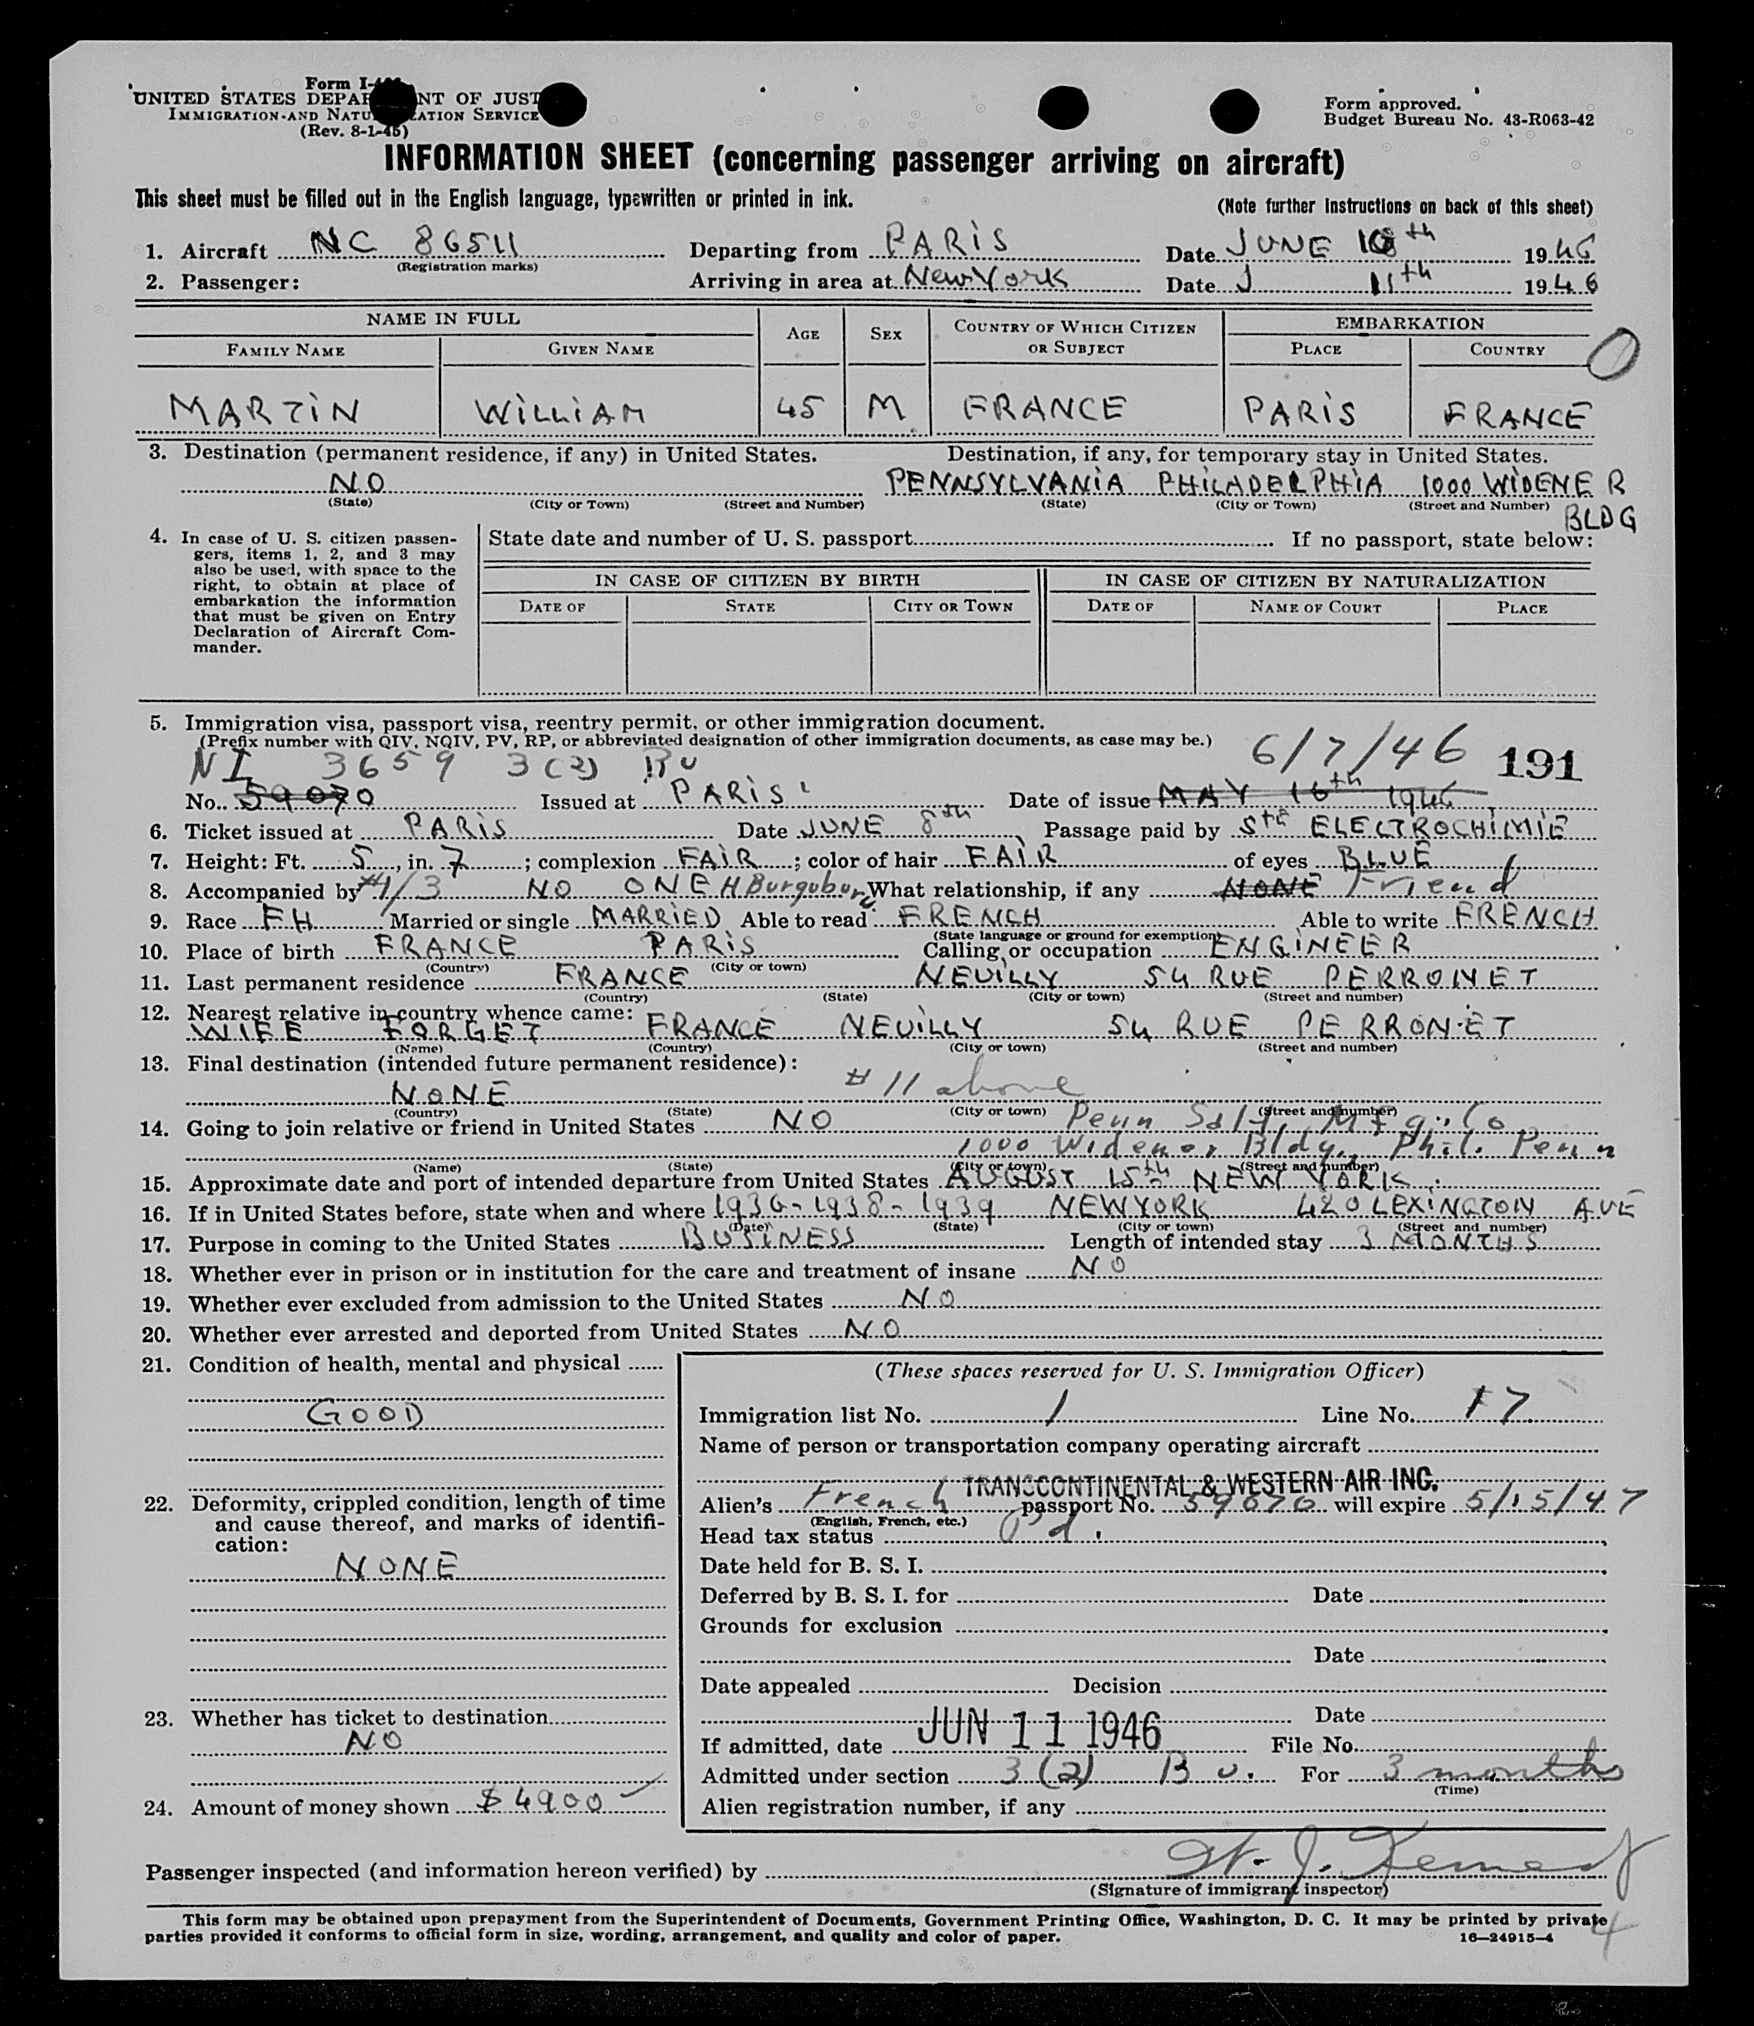 Form I-
UNITED STATES DEPAR NT OF JUST
IMMIGRATION AND NATU ZATION SERVICE
(Rev. 8-1-45)
Form approved.
Budget Bureau No. 43-R063-42
INFORMATION SHEET (concerning passenger arriving on aircraft)
This sheet must be filled out in the English language, typewritten or printed in ink.
(Note further instructions on back of this sheet)
1. Aircraft NC 86511 Departing from PARIS Date JUNE 10th 1946
(Registration marks)
2. Passenger: Arriving in area at New York Date J 11th 1946
NAME IN FULL AGE SEX COUNTRY OF WHICH CITIZEN OR SUBJECT EMBARKATION
FAMILY NAME GIVEN NAME PLACE COUNTRY
MARTIN WILLIAM 45 M FRANCE PARIS FRANCE
3. Destination (permanent residence, if any) in United States. Destination, if any, for temporary stay in United States.
NO PENNSYLVANIA PHILADELPHIA 1000 WIDENER
(State) (City or Town) (Street and Number) (State) (City or Town) (Street and Number) BLDG
4. In case of U. S. citizen passen-
gers, items 1, 2, and 3 may
also be used, with space to the
right, to obtain at place of
embarkation the information
that must be given on Entry
Declaration of Aircraft Com-
mander.
State date and number of U. S. passport If no passport, state below:
IN CASE OF CITIZEN BY BIRTH IN CASE OF CITIZEN BY NATURALIZATION
DATE OF STATE CITY OR TOWN DATE OF NAME OF COURT PLACE
5. Immigration visa, passport visa, reentry permit, or other immigration document.
(Prefix number with QIV, NQIV, PV, RP, or abbreviated designation of other immigration documents, as case may be.)
NI 3659 3(2) Bu 6/7/46 191
No. 59070 Issued at PARIS Date of issue MAY 16th 1946
6. Ticket issued at PARIS Date JUNE 8th Passage paid by Sté ELECTROCHIMIE
7. Height: Ft. 5, in. 7; complexion FAIR; color of hair FAIR of eyes BLUE
8. Accompanied by #1/3 NO ONE H Burgubur What relationship, if any NONE Friend
9. Race FH Married or single MARRIED Able to read FRENCH Able to write FRENCH
(State language or ground for exemption)
10. Place of birth FRANCE PARIS Calling or occupation ENGINEER
(Country) (City or town)
11. Last permanent residence FRANCE NEUILLY 54 RUE PERRONET
(Country) (State) (City or town) (Street and number)
12. Nearest relative in country whence came:
WIFE FORGET FRANCE NEUILLY 54 RUE PERRONET
(Name) (Country) (City or town) (Street and number)
13. Final destination (intended future permanent residence):
NONE # 11 above
(Country) (State) (City or town) (Street and number)
14. Going to join relative or friend in United States NO Penn Salt Mfg. Co
1000 Widener Bldg., Phil. Penn
(Name) (State) (City or town) (Street and number)
15. Approximate date and port of intended departure from United States AUGUST 15th NEW YORK
16. If in United States before, state when and where 1936-1938-1939 NEW YORK 420 LEXINGTON AVE
(Date) (State) (City or town) (Street and number)
17. Purpose in coming to the United States BUSINESS Length of intended stay 3 MONTHS
18. Whether ever in prison or in institution for the care and treatment of insane NO
19. Whether ever excluded from admission to the United States NO
20. Whether ever arrested and deported from United States NO
21. Condition of health, mental and physical
GOOD
22. Deformity, crippled condition, length of time
and cause thereof, and marks of identifi-
cation:
NONE
23. Whether has ticket to destination
NO
24. Amount of money shown $ 4900
(These spaces reserved for U. S. Immigration Officer)
Immigration list No. 1 Line No. 17
Name of person or transportation company operating aircraft
TRANSCONTINENTAL & WESTERN AIR INC.
Alien's French passport No. 59070 will expire 5/15/47
(English, French, etc.)
Head tax status Pd.
Date held for B. S. I.
Deferred by B. S. I. for Date
Grounds for exclusion
Date
Date appealed Decision
Date
If admitted, date JUN 11 1946 File No.
Admitted under section 3(2) Bu. For 3 months
(Time)
Alien registration number, if any
Passenger inspected (and information hereon verified) by
(Signature of immigrant inspector)
This form may be obtained upon prepayment from the Superintendent of Documents, Government Printing Office, Washington, D. C. It may be printed by private
parties provided it conforms to official form in size, wording, arrangement, and quality and color of paper.
16—24915-4